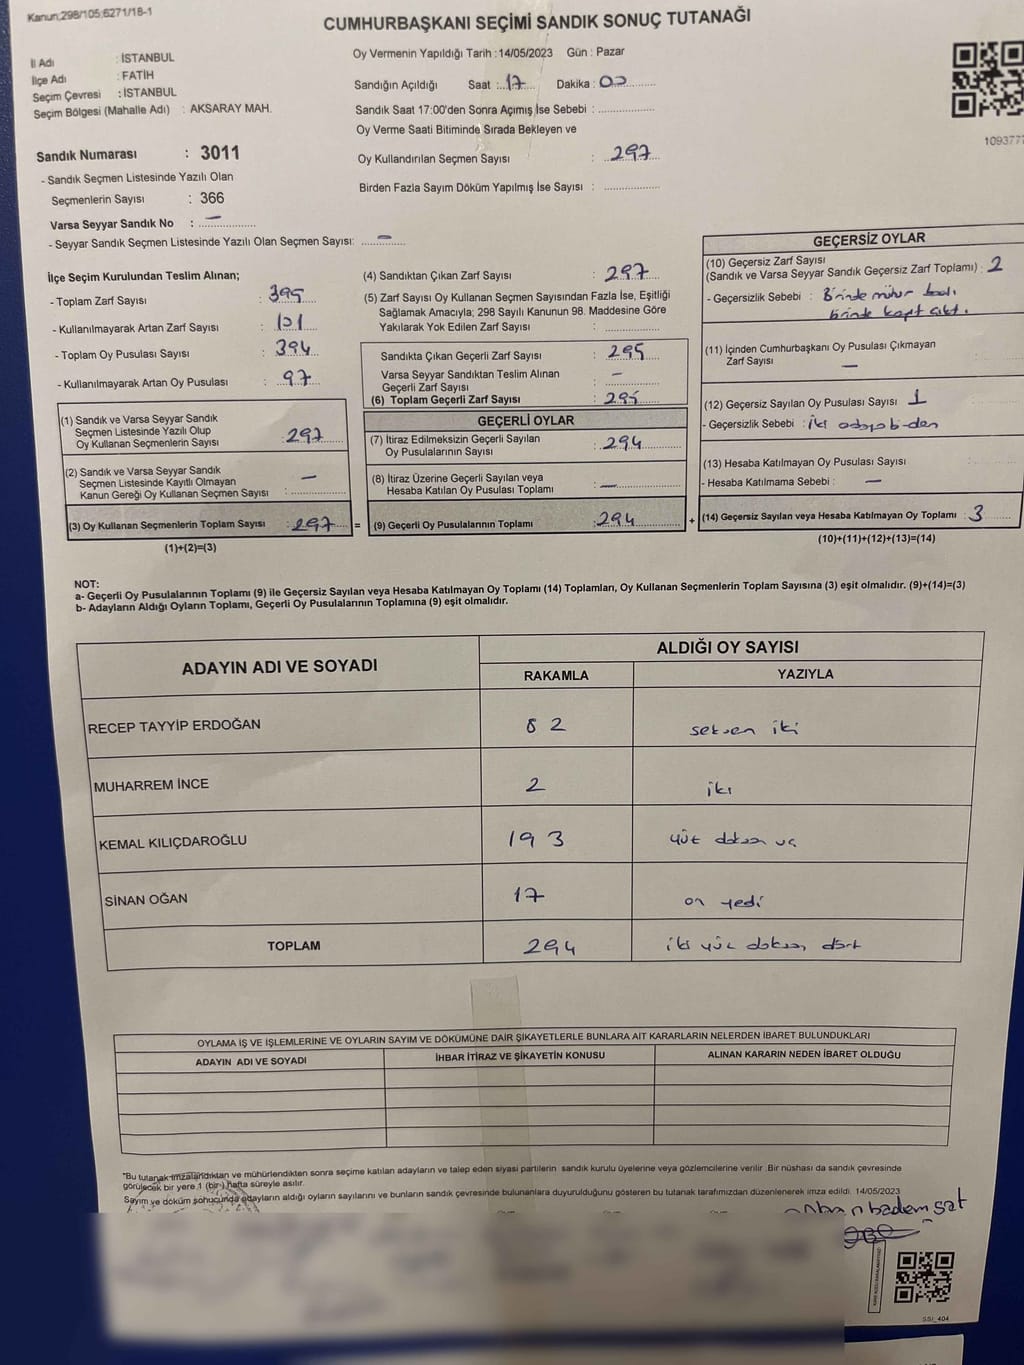 Kanun;298/105;6271/18-1
CUMHURBAŞKANI SEÇİMİ SANDIK SONUÇ TUTANAĞI
İl Adı : İSTANBUL
İlçe Adı : FATİH
Seçim Çevresi : İSTANBUL
Seçim Bölgesi (Mahalle Adı) : AKSARAY MAH.
Oy Vermenin Yapıldığı Tarih :14/05/2023 Gün : Pazar
Sandığın Açıldığı Saat : 17 Dakika : 00
Sandık Saat 17:00'den Sonra Açımış İse Sebebi :
Oy Verme Saati Bitiminde Sırada Bekleyen ve
Oy Kullandırılan Seçmen Sayısı : 297
Birden Fazla Sayım Döküm Yapılmış İse Sayısı :
109377
Sandık Numarası : 3011
- Sandık Seçmen Listesinde Yazılı Olan
Seçmenlerin Sayısı : 366
Varsa Seyyar Sandık No : –
- Seyyar Sandık Seçmen Listesinde Yazılı Olan Seçmen Sayısı: –
İlçe Seçim Kurulundan Teslim Alınan;
- Toplam Zarf Sayısı : 395
- Kullanılmayarak Artan Zarf Sayısı : 101
- Toplam Oy Pusulası Sayısı : 394
- Kullanılmayarak Artan Oy Pusulası : 97
(1) Sandık ve Varsa Seyyar Sandık
Seçmen Listesinde Yazılı Olup
Oy Kullanan Seçmenlerin Sayısı : 297
(2) Sandık ve Varsa Seyyar Sandık
Seçmen Listesinde Kayıtlı Olmayan
Kanun Gereği Oy Kullanan Seçmen Sayısı : –
(3) Oy Kullanan Seçmenlerin Toplam Sayısı : 297 =
(1)+(2)=(3)
(4) Sandıktan Çıkan Zarf Sayısı : 297
(5) Zarf Sayısı Oy Kullanan Seçmen Sayısından Fazla İse, Eşitliği
Sağlamak Amacıyla; 298 Sayılı Kanunun 98. Maddesine Göre
Yakılarak Yok Edilen Zarf Sayısı :
Sandıkta Çıkan Geçerli Zarf Sayısı : 295
Varsa Seyyar Sandıktan Teslim Alınan
Geçerli Zarf Sayısı : –
(6) Toplam Geçerli Zarf Sayısı : 295
GEÇERLİ OYLAR
(7) İtiraz Edilmeksizin Geçerli Sayılan
Oy Pusulalarının Sayısı : 294
(8) İtiraz Üzerine Geçerli Sayılan veya
Hesaba Katılan Oy Pusulası Toplamı : –
(9) Geçerli Oy Pusulalarının Toplamı : 294 +
GEÇERSİZ OYLAR
(10) Geçersiz Zarf Sayısı
(Sandık ve Varsa Seyyar Sandık Geçersiz Zarf Toplamı) : 2
- Geçersizlik Sebebi : Birinde mühür
birinde çıktı.
(11) İçinden Cumhurbaşkanı Oy Pusulası Çıkmayan
Zarf Sayısı –
(12) Geçersiz Sayılan Oy Pusulası Sayısı 1
- Geçersizlik Sebebi : iki adaya birden
(13) Hesaba Katılmayan Oy Pusulası Sayısı :
- Hesaba Katılmama Sebebi : –
(14) Geçersiz Sayılan veya Hesaba Katılmayan Oy Toplamı : 3
(10)+(11)+(12)+(13)=(14)
NOT:
a- Geçerli Oy Pusulalarının Toplamı (9) ile Geçersiz Sayılan veya Hesaba Katılmayan Oy Toplamı (14) Toplamları, Oy Kullanan Seçmenlerin Toplam Sayısına (3) eşit olmalıdır. (9)+(14)=(3)
b- Adayların Aldığı Oyların Toplamı, Geçerli Oy Pusulalarının Toplamına (9) eşit olmalıdır.
ADAYIN ADI VE SOYADI
ALDIĞI OY SAYISI
RAKAMLA YAZIYLA
RECEP TAYYİP ERDOĞAN 82 seksen iki
MUHARREM İNCE 2 iki
KEMAL KILIÇDAROĞLU 193 yüz doksan üç
SİNAN OĞAN 17 on yedi
TOPLAM 294 iki yüz doksan dört
OYLAMA İŞ VE İŞLEMLERİNE VE OYLARIN SAYIM VE DÖKÜMÜNE DAİR ŞİKAYETLERLE BUNLARA AİT KARARLARIN NELERDEN İBARET BULUNDUKLARI
ADAYIN ADI VE SOYADI İHBAR İTİRAZ VE ŞİKAYETİN KONUSU ALINAN KARARIN NEDEN İBARET OLDUĞU
"Bu tutanak imzalandıktan ve mühürlendikten sonra seçime katılan adayların ve talep eden siyasi partilerin sandık kurulu üyelerine veya gözlemcilerine verilir. Bir nüshası da sandık çevresinde
görülecek bir yere 1 (bir) hafta süreyle asılır.
Sayım ve döküm sonucunda adayların aldığı oyların sayılarını ve bunların sandık çevresinde bulunanlara duyurulduğunu gösteren bu tutanak tarafımızdan düzenlenerek imza edildi. 14/05/2023
SSİ_404